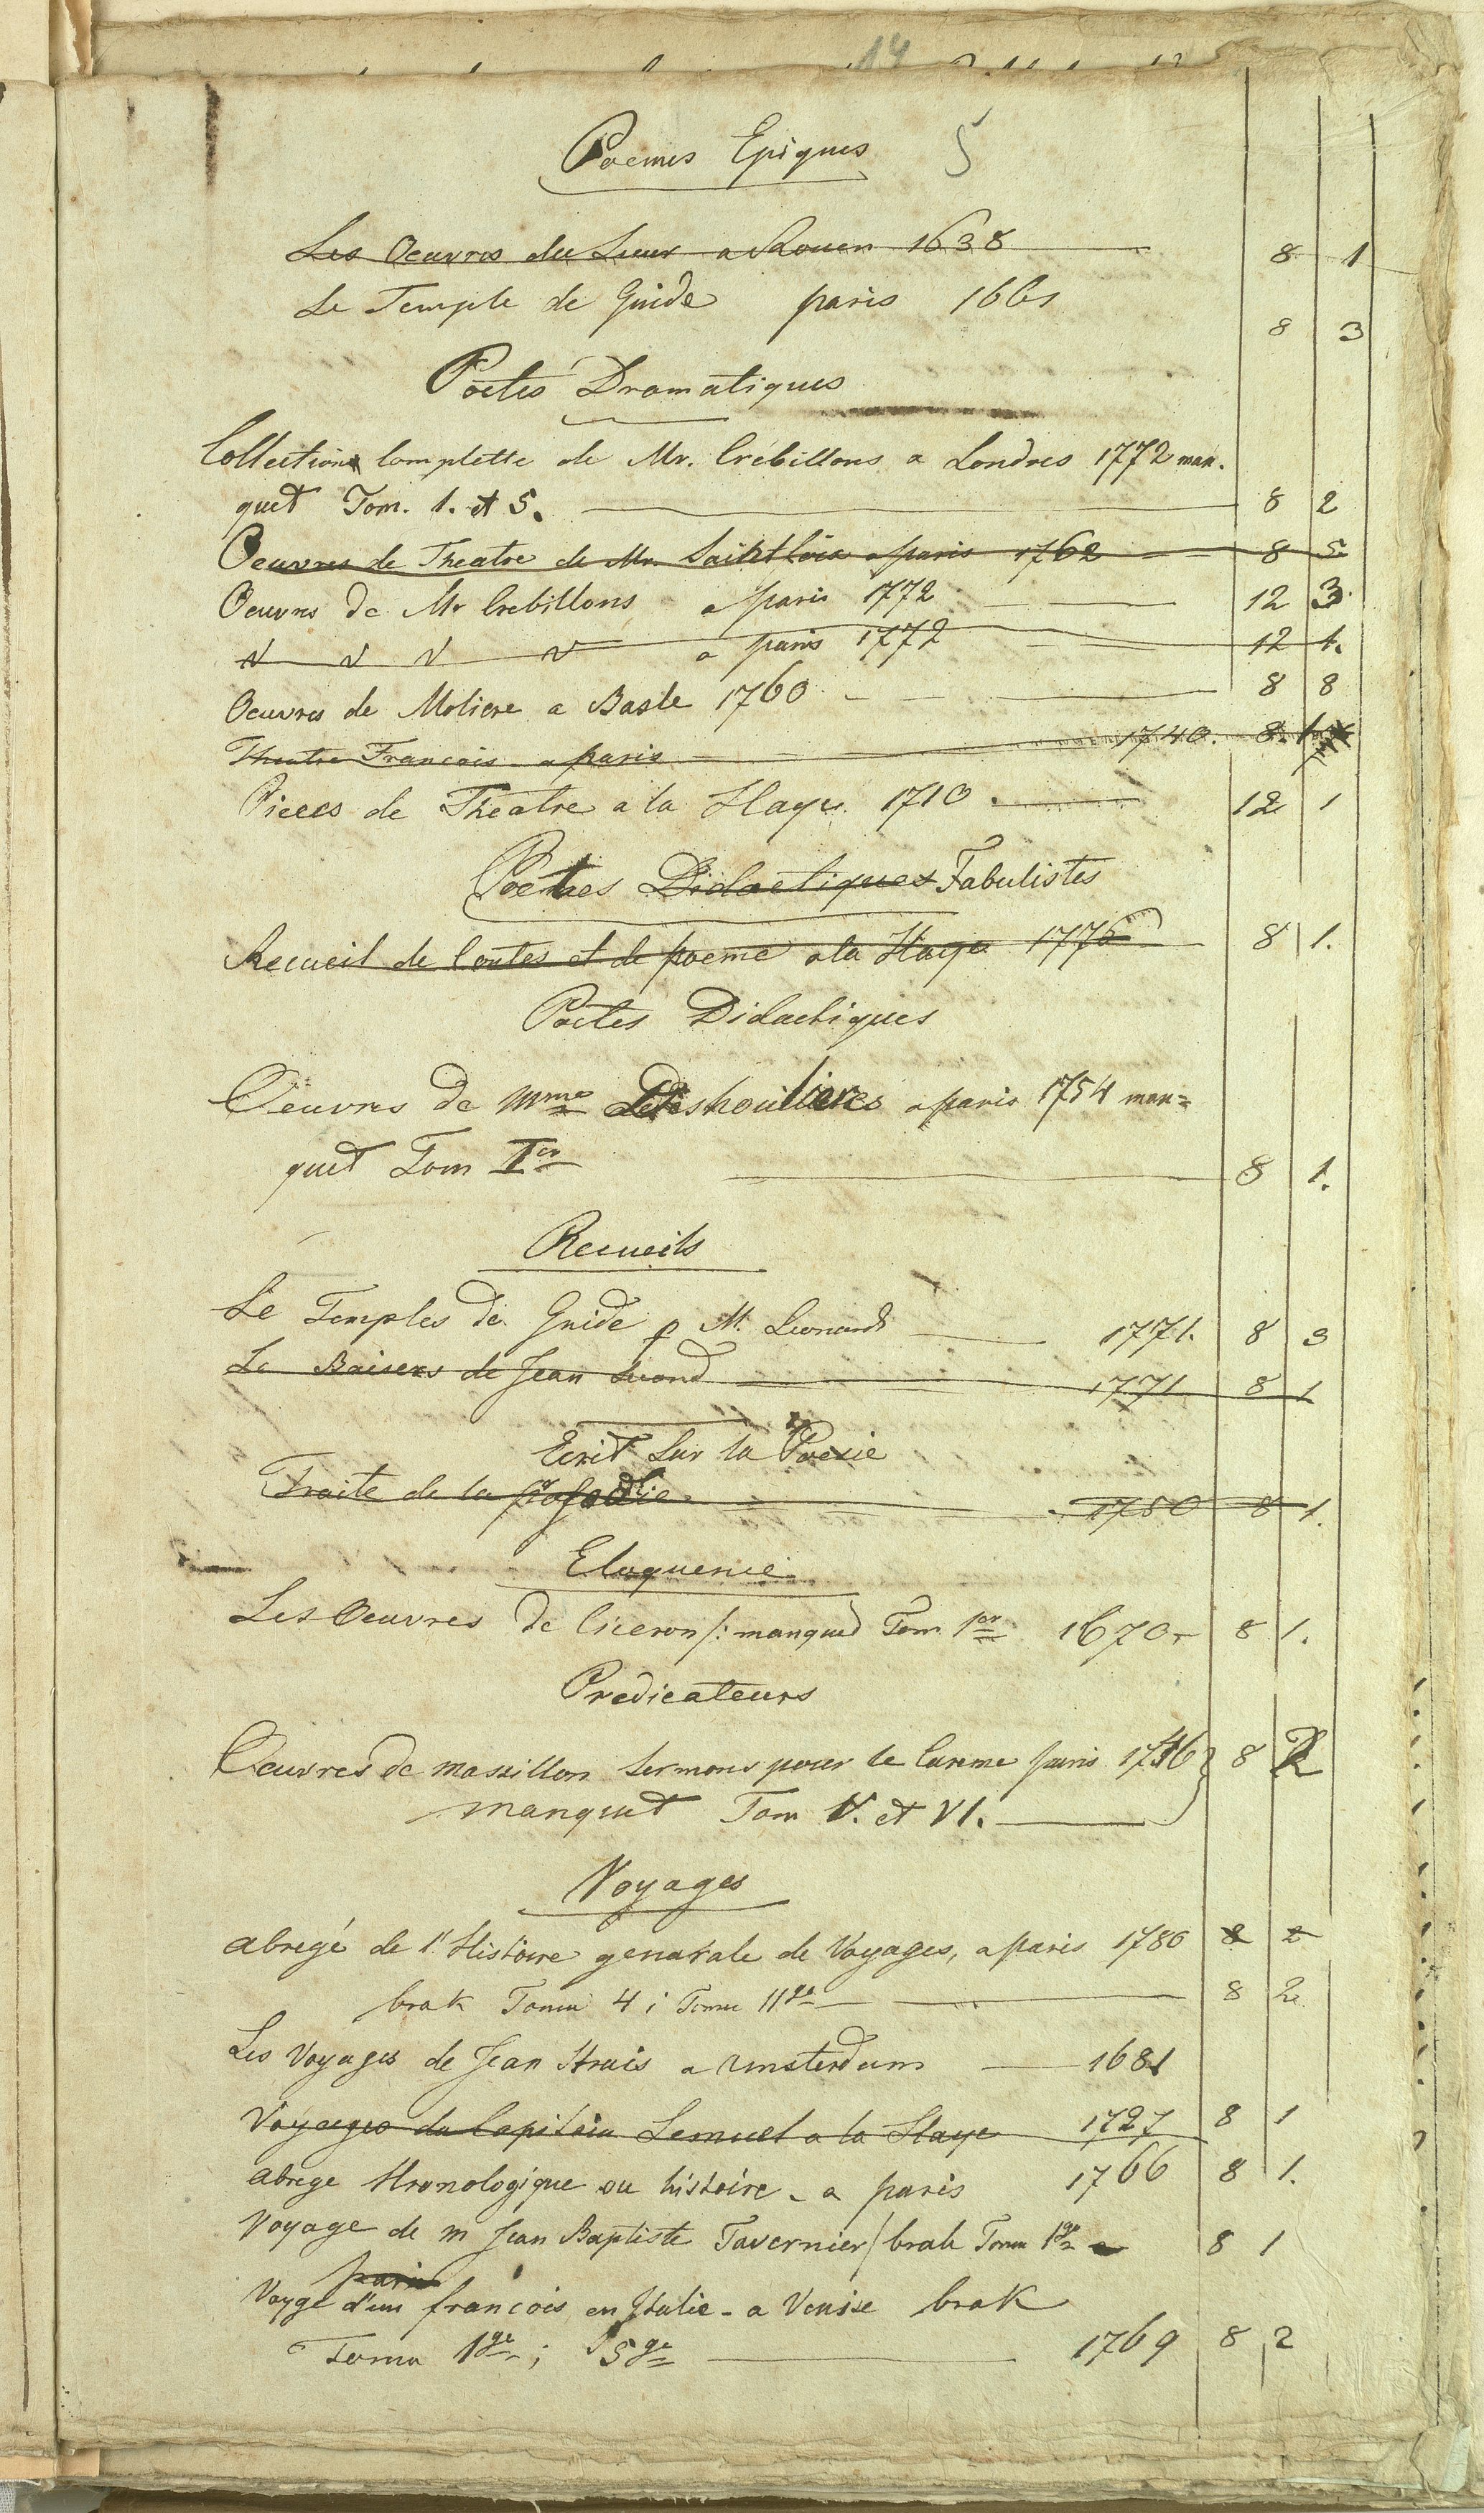 14
Poemes Epiques 5
Les Oeuvres du Sieur a Rouen 1638 8 1
Le Temple de Gnide paris 8 3
Poetes Dramatiques
Collection complette de Mr. Crebillons a Londres 1772 man.
quet Tom. 1. et 5. 8 2
Oeuvres de Theatre de Mr. a paris 1762 8 5
Oeuvres de Mr Crebillons a paris 1772 12 3
V V V V a paris 1772 12 1.
Oeuvres de Moliere a Basle 1760 8 8
Theatre Francois a paris 1740. 8.
Pieces de Theatre a la Haye 1710 12 1
Poetes Didactiques Fabulistes
Recueil de Contes et de poeme a la Haye 1776 8 1.
Poetes Didactiques
Oeuvres de Mme Deshoulieres a paris 1754 man=
quet Tom Ier 8 1.
Recueils
Le Temples de Gnide p M. Leonard 1771. 8 3
Le Baisers de Jean Second 1771 8 1
Ecrit Sur la Poesie
Traite de la 1750 8 1.
Eloquence
Les Oeuvres de Ciceron /: manqued Tom 1er 1670 8 1.
Predicateurs
Oeuvres de Massillon Sermons pour le Careme paris 8
manquet Tom V. et VI.
Voyages
abregé de l'Histoire generale de Voyages, a paris 1780 8 2
brak Tomu 4 ; Tomu 11go 8 2
Les Voyages de Jean Struis a Amsterdam 1681
Voyages du Capitain Lemuel a la Haye 1727 8 1
abrege Kronologique ou histoire - a paris 1766 8 1.
Voyage de m Jean Baptiste Tavernier / brak Tomu 1go a 8 1
paris
Voyge d'un francois en Italie - a Venise brak
Tomu 1go ; 5go 1769 8 2